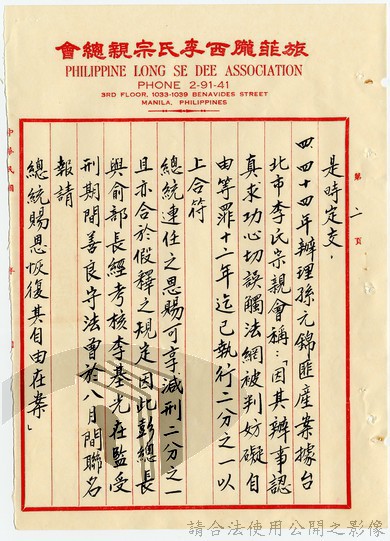 旅菲隴西李氏宗親總會
PHILIPPINE LONG SE DEE ASSOCIATION
PHONE 2-91-41
3RD FLOOR, 1033-1039 BENAVIDES STREET
MANILA, PHILIPPINES
第二頁
是時定支,
四、四十四年辦理孫元錦匪產業據台
北市李氏宗親會稱:「因其辦事認
真求功心切誤觸法網被判妨礙自
由等罪十二年迄已執行二分之一以
上合符
總統連任之恩賜可享減刑二分之一
且亦合於假釋之規定因此彭總長
與俞部長經考核李基光在監受
刑期間善良守法曾於八月間聯名
報請
總統賜恩恢復其自由在案」
中華民國 年
請合法使用公開之影像